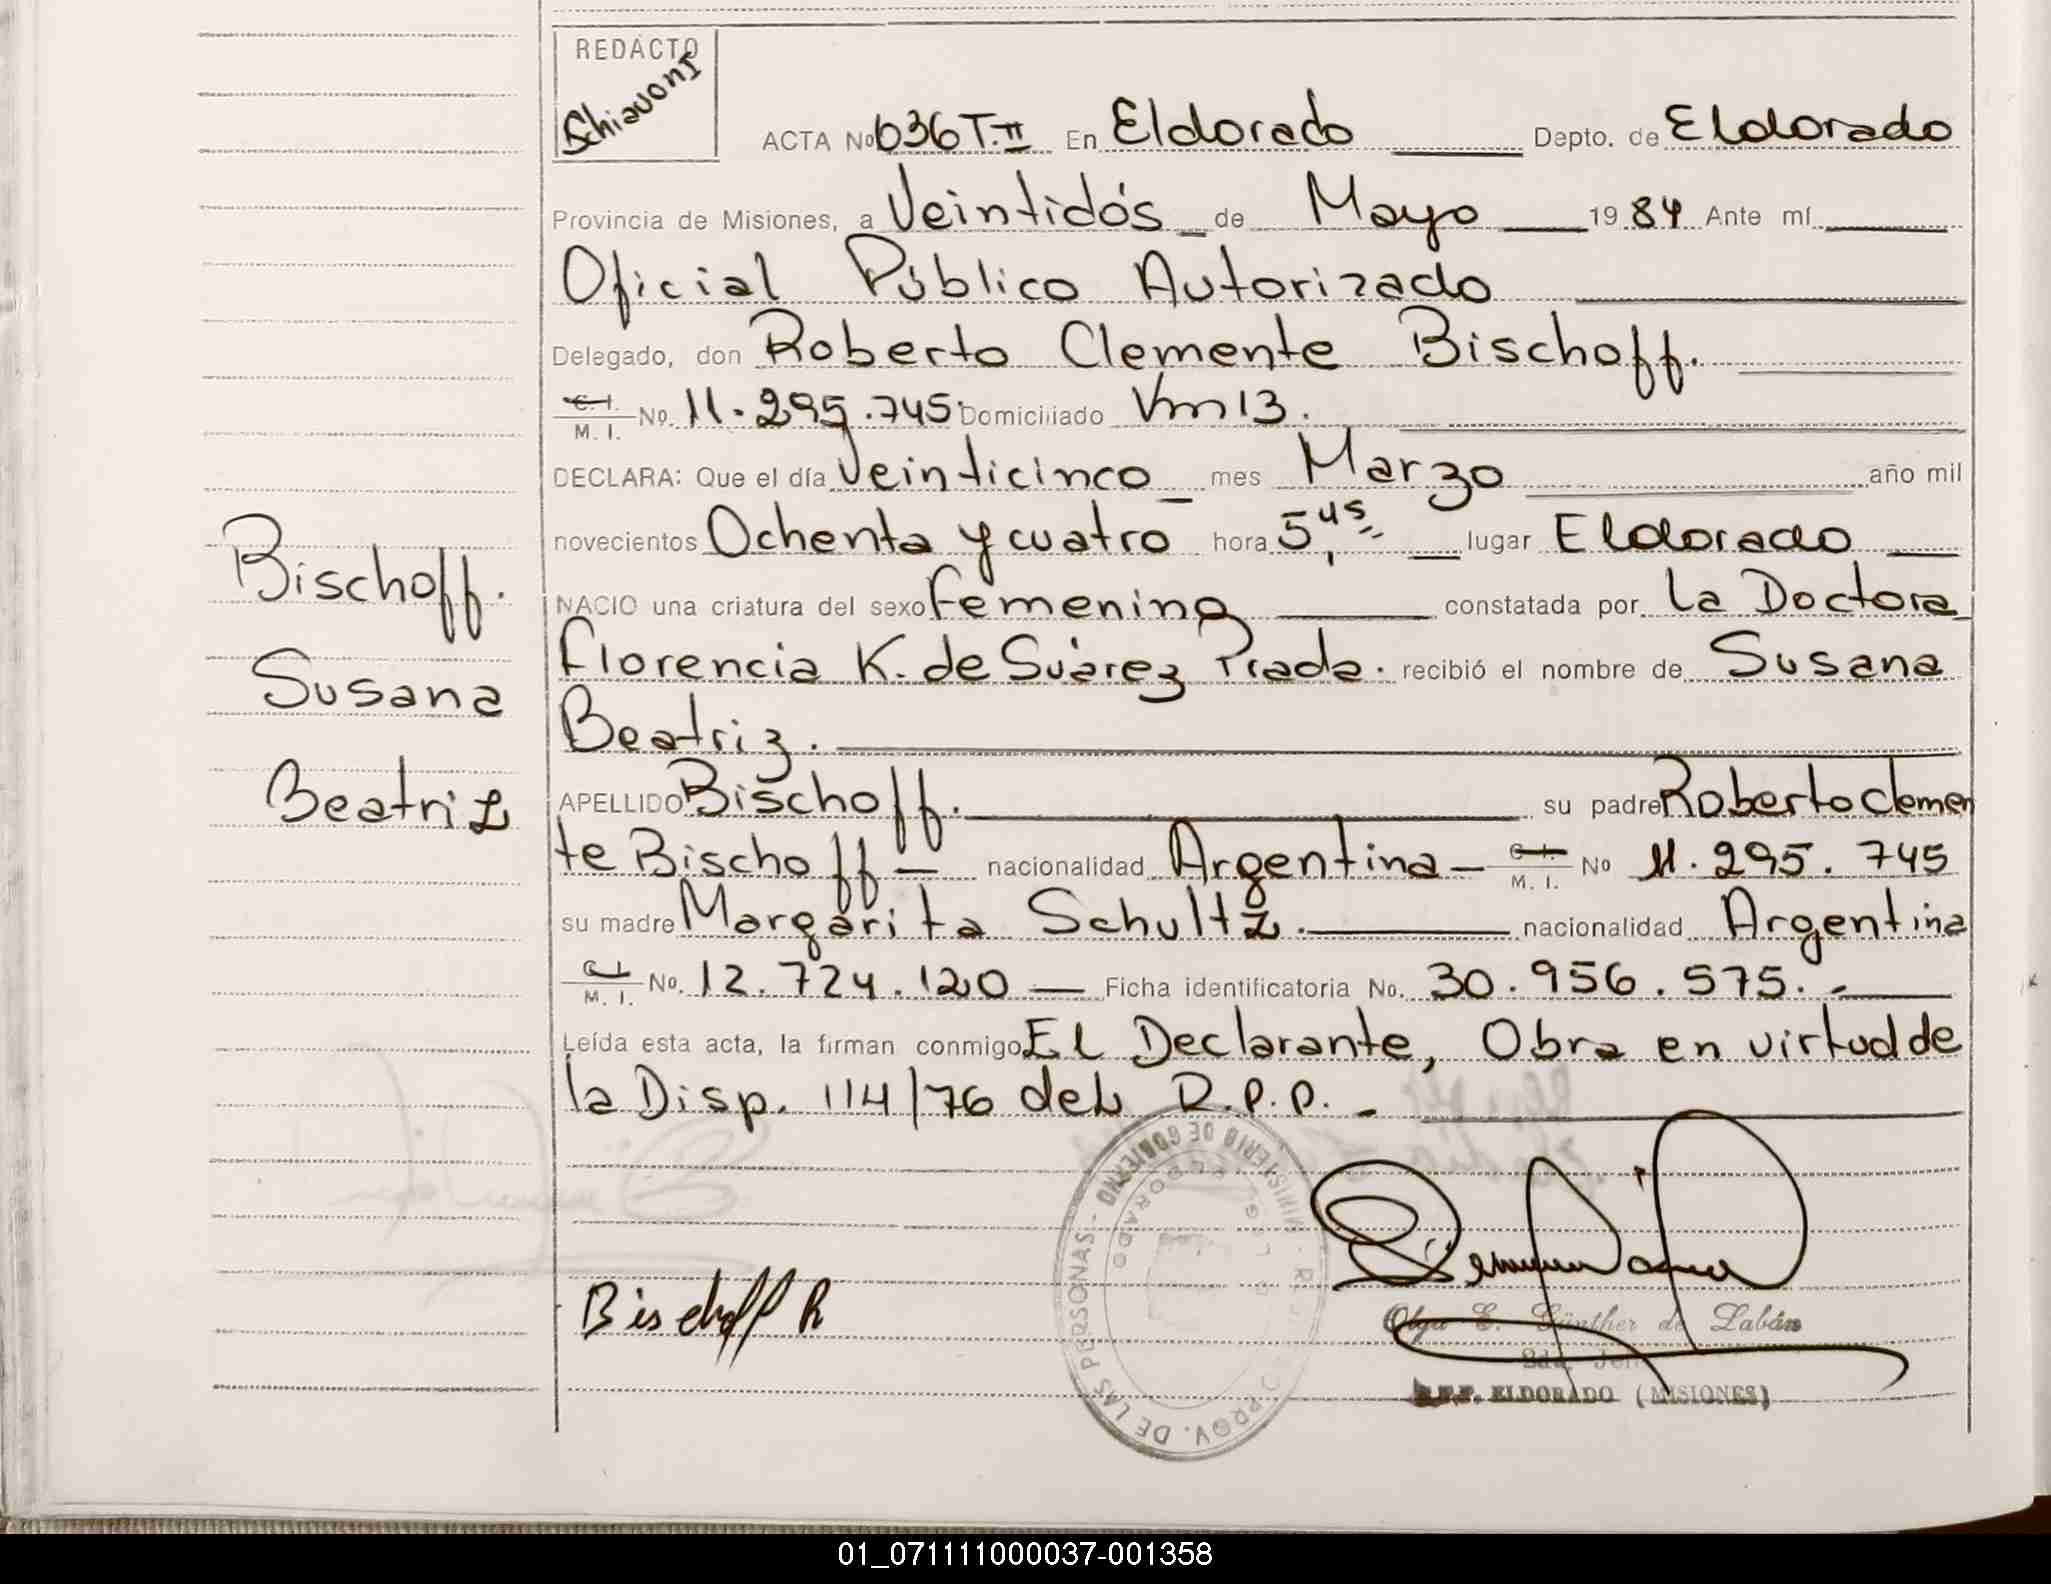 REDACTO
Schiavoni
ACTA Nº 636 T. II En Eldorado Depto. de Eldorado
Provincia de Misiones, a Veintidós de Mayo 1984 Ante mí
Oficial Público Autorizado
Delegado, don Roberto Clemente Bischoff.
C. I. M. I. Nº. 11.295.745 Domiciliado Vm 13.
DECLARA: Que el día Veinticinco mes Marzo año mil
novecientos Ochenta y cuatro hora 5,45 lugar Eldorado
NACIO una criatura del sexo Femenino constatada por la Doctora
Florencia K. de Suárez Prada. recibió el nombre de Susana
Beatriz.
APELLIDO Bischoff. su padre Roberto Clemen
te Bischoff — nacionalidad Argentina — C. I. M. I. Nº 11.295.745
su madre Margarita Schultz. nacionalidad Argentina
C. I. M. I. Nº. 12.724.120 — Ficha identificatoria No. 30.956.575.-
Leída esta acta, la firman conmigo El Declarante, Obra en virtud de
la Disp. 114/76 del R.P.P. -
Bischoff.
Susana
Beatriz
Bischoff R
MINISTERIO DE GOBIERNO
ELDORADO
PROV. DE LAS PERSONAS
Olga E. Günther de Labán
2da. Jefe
R.P.P. ELDORADO (MISIONES)
01_071111000037-001358